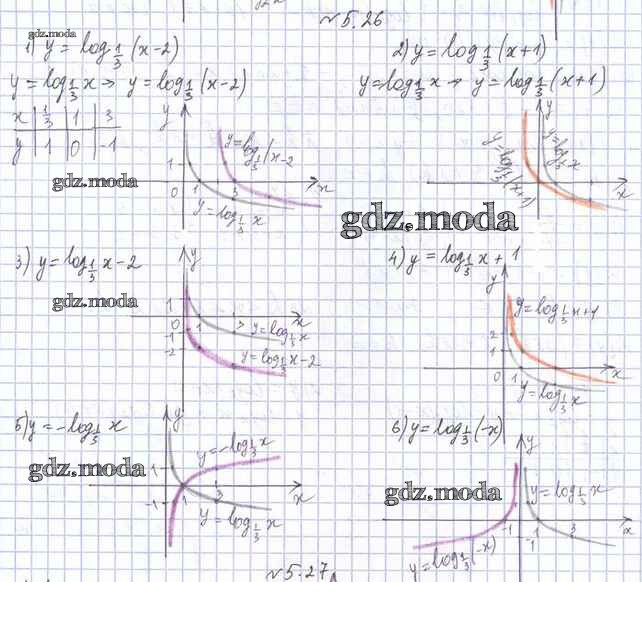 №5.26
gdz.moda
1) y = log 1/3 (x-2)
y = log 1/3 x → y = log 1/3 (x-2)
x | 1/3 | 1 | 3
y | 1 | 0 | -1
gdz.moda
y
1
0 1 3 x
y = log 1/3 (x-2
y = log 1/3 x
2) y = log 1/3 (x+1)
y = log 1/3 x → y = log 1/3 (x+1)
y
y = log 1/3 (x+1)
y = log 1/3 x
x
gdz.moda
3) y = log 1/3 x - 2
gdz.moda
y
1
0 1 x
-1
-2
y = log 1/3 x
y = log 1/3 x - 2
4) y = log 1/3 x + 1
y
2
1
0 1 x
y = log 1/3 x + 1
y = log 1/3 x
5) y = -log 1/3 x
gdz.moda
y
1
-1
1 3 x
y = -log 1/3 x
y = log 1/3 x
6) y = log 1/3 (-x)
gdz.moda
y
-1 1 3 x
-1
y = log 1/3 x
y = log 1/3 (-x)
№5.27